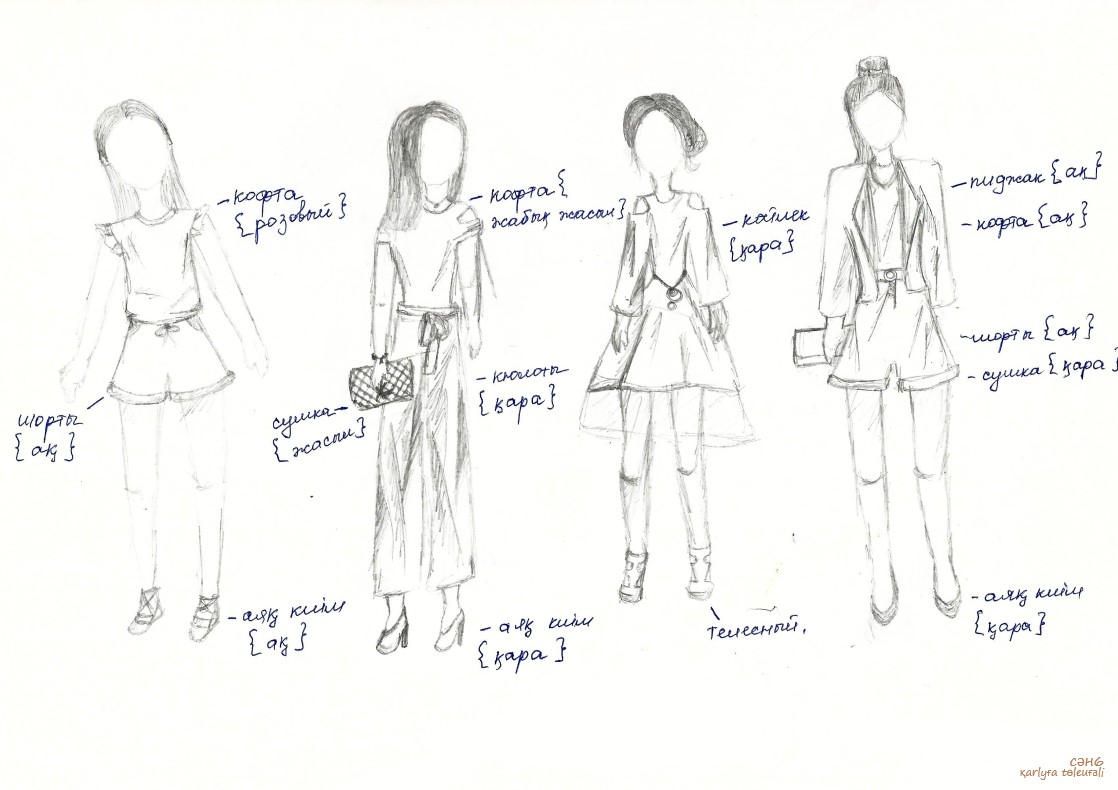 – кофта
{розовый}
шорты
{ақ}
– аяқ киім
{ақ}
– кофта {
жабық жасыл}
сушка –
{жасыл}
– кюлоты
{қара}
– аяқ киім
{қара}
– көйлек
{қара}
телесный.
– пиджак {ақ}
– кофта {ақ}
– шорты {ақ}
– сушка {қара}
– аяқ киім
{қара}
СӘНБ
қarlyғa төleuғali